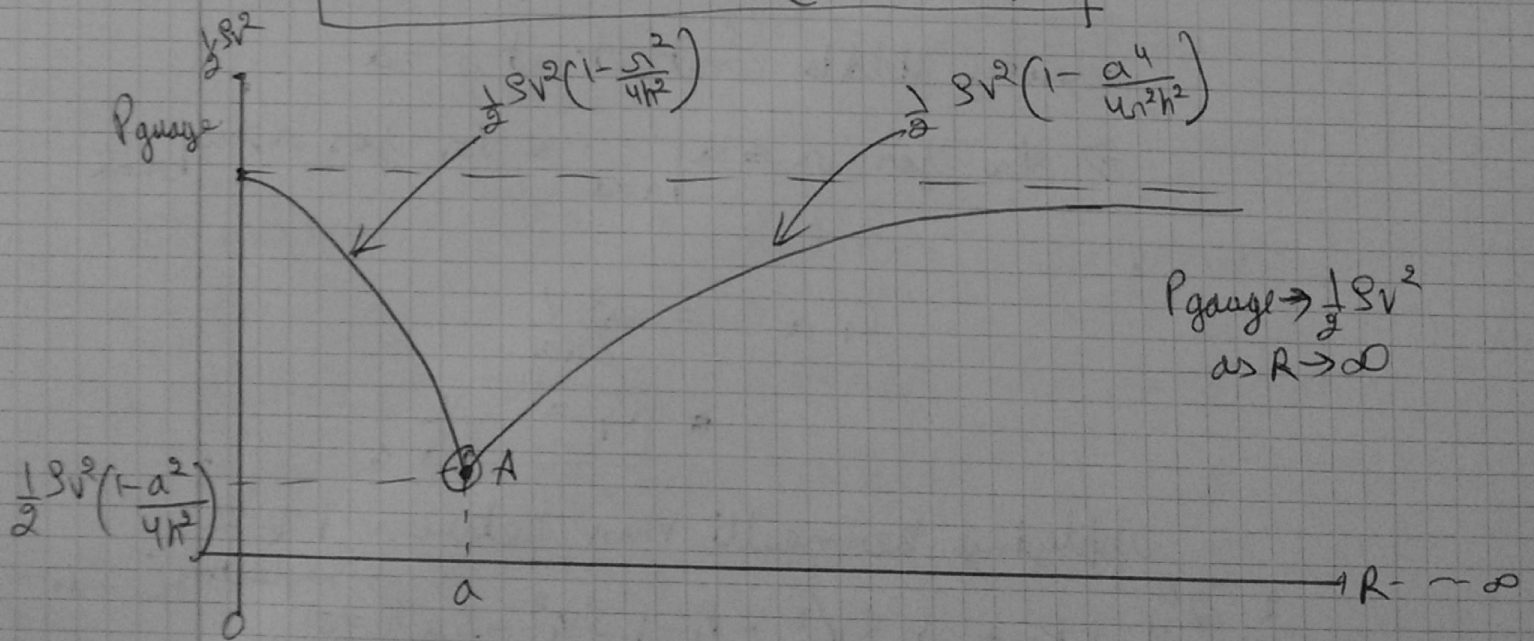 ½ρv²
Pguage
½ρv²(1-r²/4h²)
½ρv²(1-a⁴/4r²h²)
Pgauge→½ρv²
as R→∞
A
½ρv²(1-a²/4h²)
a
R - ~ ∞
0